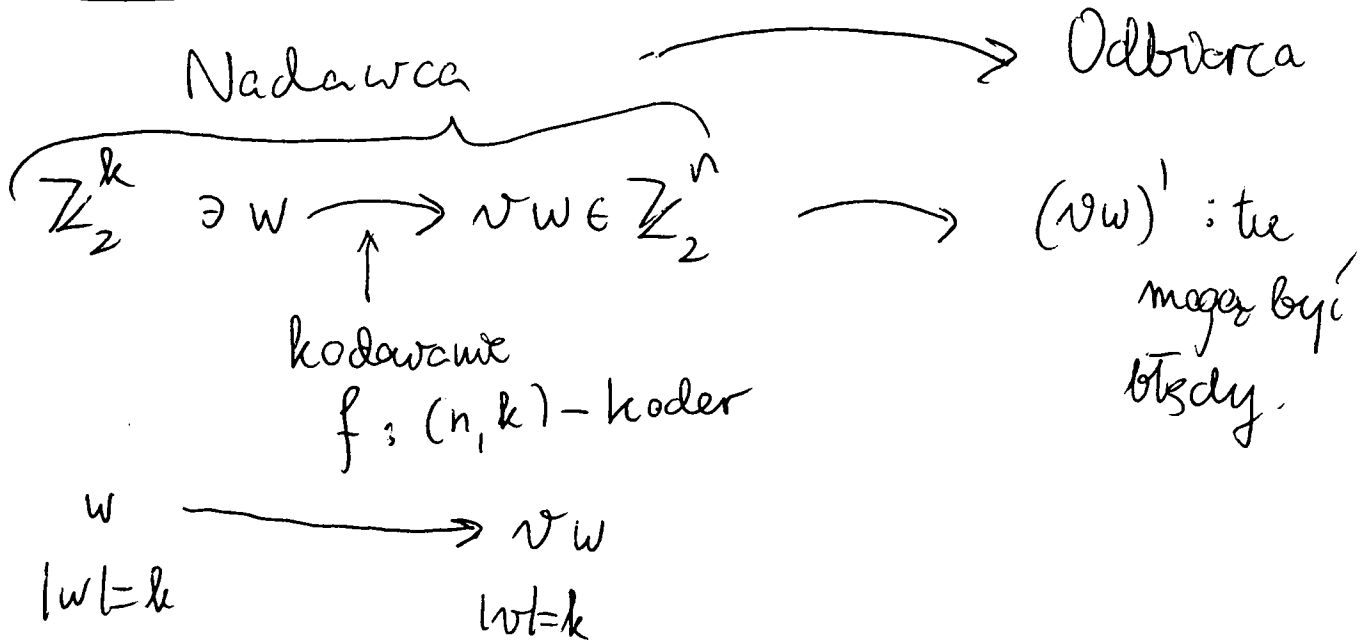 Nadawca ⟶ Odbiorca
ℤ₂ᵏ ∋ w ⟶ vw ∈ ℤ₂ⁿ ⟶ (vw)' : tu
mogą być
błędy.
kodowanie
f : (n, k) – koder
w ⟶ vw
|w|=k |v|=k